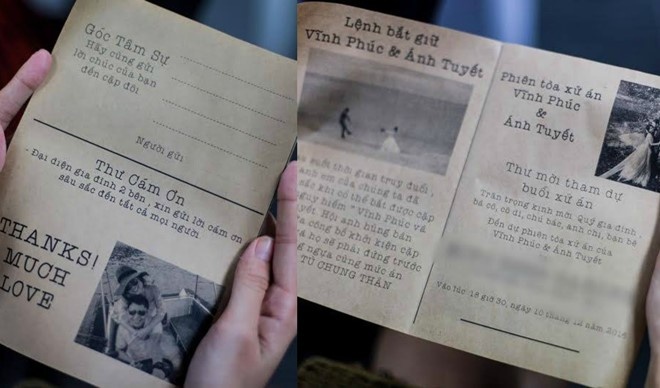 Góc Tâm Sự
Hãy cùng gửi
lời chúc của bạn
đến cặp đôi
Người gửi
Thư Cám Ơn
- Đại diện gia đình 2 bên , xin gửi lời cám ơn
sâu sắc đến tất cả mọi người
THANKS!
MUCH
LOVE
Lệnh bắt giữ
Vĩnh Phúc & Ánh Tuyết
suốt thời gian truy đuổi,
anh em của chúng ta đã
sắc khi có thể bắt được cặp
nguy hiểm " Vĩnh Phúc và
Tuyết. Hội anh hùng bàn
công bố khởi kiện cặp
và họ sẽ phải đứng trước
ngựa cùng mức án
TÙ CHUNG THÂN
Phiên tòa xử án
Vĩnh Phúc
&
Ánh Tuyết
Thư mời tham dự
buổi xử án
Trân trọng kính mời Quý gia đình ,
bà cô, cô dì, chú bác, anh chị, bạn bè
Đến dự phiên tòa xử án của
Vĩnh Phúc & Ánh Tuyết
Vào lúc 18 giờ 30, ngày 10 tháng 12 năm